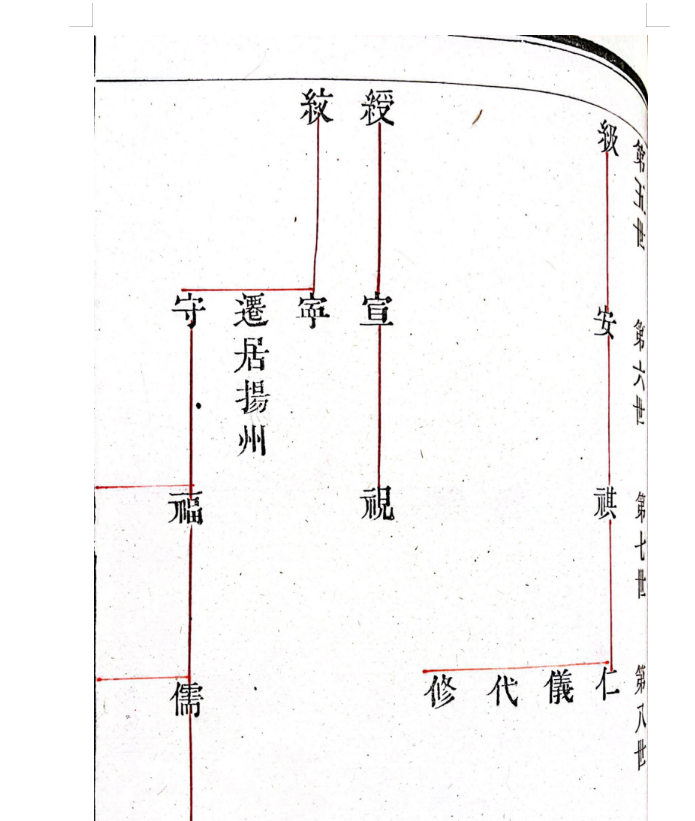 第五世
級
綬
紋
第六世
安
宣
寕
遷居揚州
守
第七世
祺
視
福
第八世
仁
儀
代
修
儒